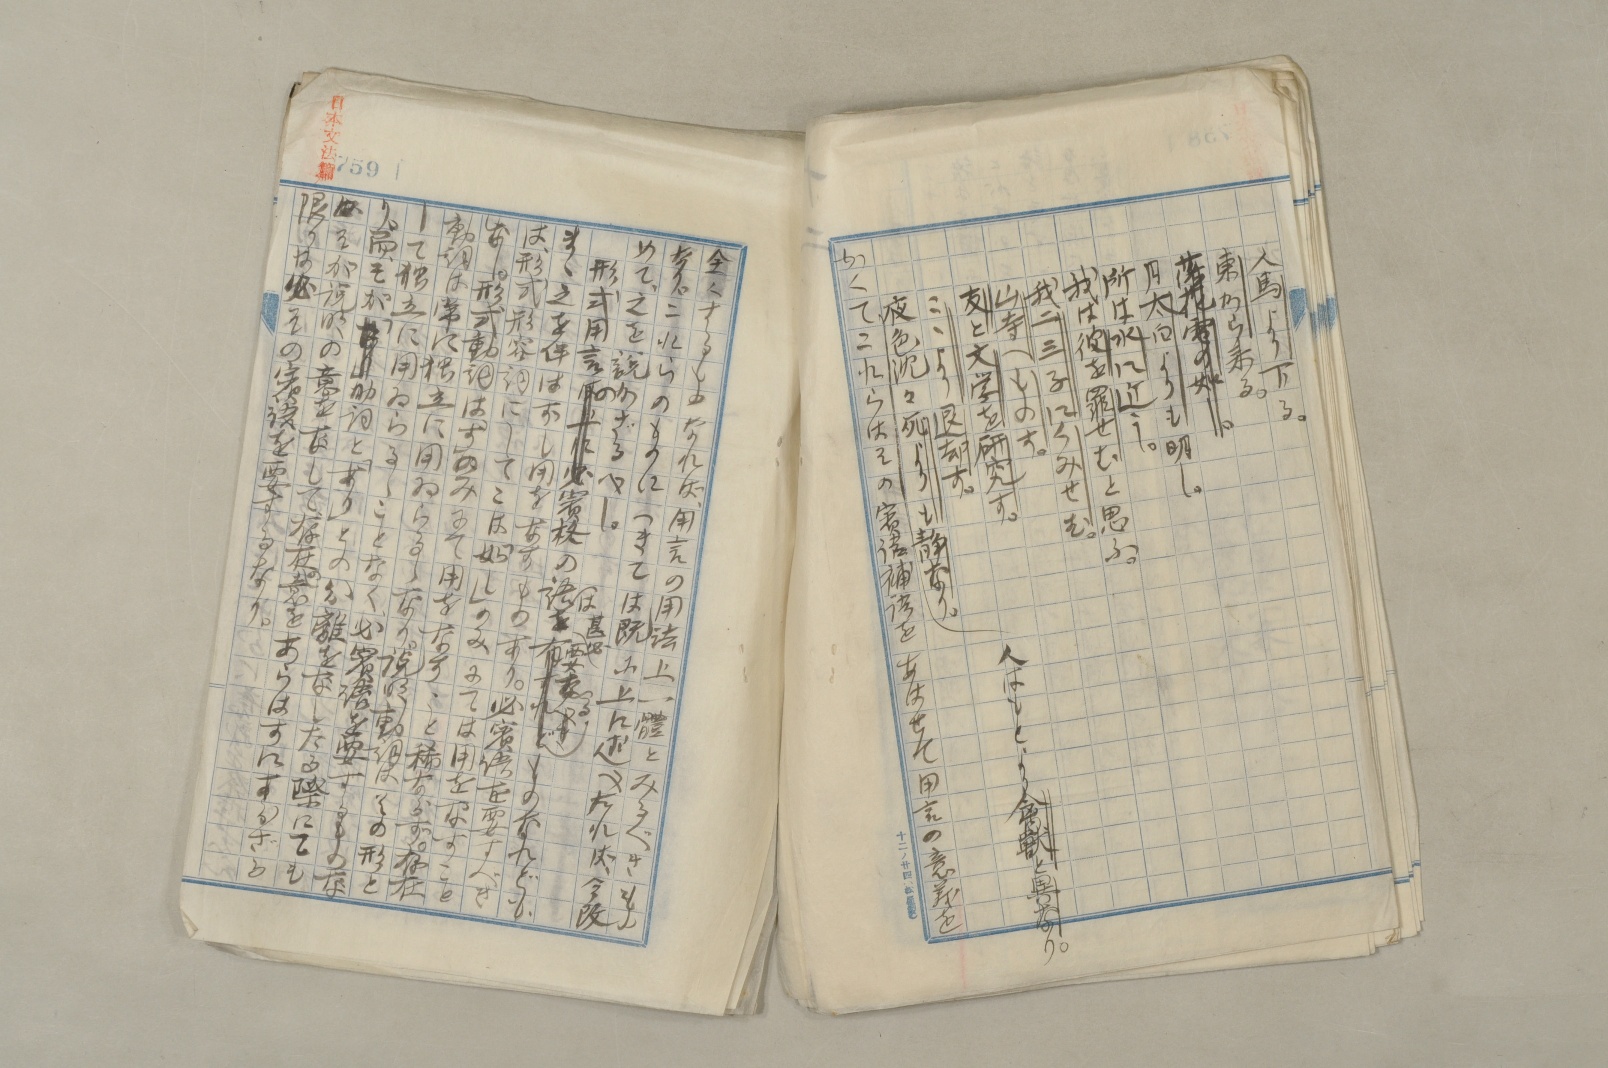 人馬より下る。
東から来る。
落花雪の如し。
月太白よりも明し。
所は水に近し。
我は彼を罷せむと思ふ。
我二三子にくみせむ。
山寺へものす。
友と文学を研究す。
ここより退却す。
夜色沈々死よりも静なり。
人はもとより禽獣と異なり。
かくてこれらはその賓語補語をあはせて用言の意義を
日本文法論
759
全くするものなれば、用言の用法上一體とみるべきもの
なり。これらのものにつきては既に上に述べたれば、今改
めて之を説かざるべし。
形式用言の上に必賓格の語を要する
は甚
まゝ之を伴はずし用をなすものあり。必賓語を要すべき
は、形式形容詞にしてこは「如し」のみにては用をなすこと
なし。形式動詞は「す」のみにて用をなすこと稀ならず。存在
動詞は常に独立に用ゐらるゝなり。説明動詞はその形と
して独立に用ゐらるゝことなく、必賓語を要するものな
り。而、そが、助詞と「あり」との分離をなしたる際にても
必そが説明の意をなして存在の意をあらはすにあらざる
限りは必その賓語を要するなり。